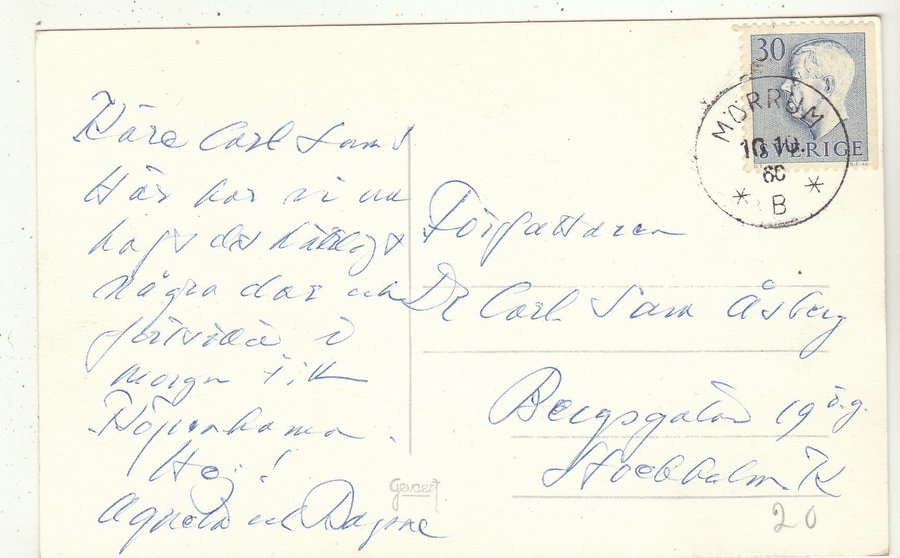 Käre Carl Sam!
Här har vi nu
haft det härligt
några dar och
fortsätter i
morgon till
Köpenhamn.
Hej!
Agneta och Dagmar
Gevaert
30
SVERIGE
MÖRRUM
10.10.
60
* B *
Författaren
Dr Carl Sam Åsberg
Bergsgatan 19 ö.g.
Stockholm. K
20